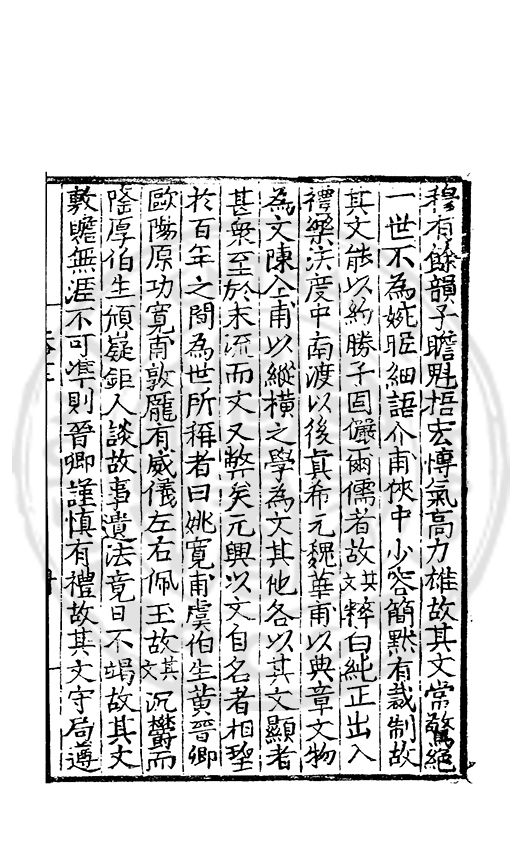 穆有餘韻子瞻魁梧宏愽氣高力雄故其文常驚絕
一世不為婉昵細語介甫狹中少容簡默有裁制故
其文能以約勝子固儼爾儒者故其文粹白純正出入
禮樂法度中南渡以後眞希元魏華甫以典章文物
為文陳仝甫以縱横之學為文其他各以其文顯者
甚衆至於末流而文又弊矣元興以文自名者相望
於百年之間為世所稱者曰姚寬甫虞伯生黃晉卿
歐陽原功寬甫敦龐有威儀左右佩玉故其文沉欝而
隆厚伯生頎嶷鉅人談故事遺法竟日不竭故其文
敷贍無涯不可凖則晉卿謹慎有禮故其文守局遵